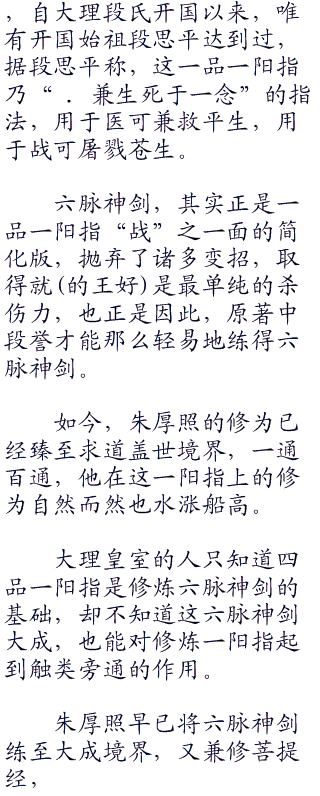 ，自大理段氏开国以来，唯
有开国始祖段思平达到过，
据段思平称，这一品一阳指
乃“．兼生死于一念”的指
法，用于医可兼救平生，用
于战可屠戮苍生。
六脉神剑，其实正是一
品一阳指“战”之一面的简
化版，抛弃了诸多变招，取
得就(的王好)是最单纯的杀
伤力，也正是因此，原著中
段誉才能那么轻易地练得六
脉神剑。
如今，朱厚照的修为已
经臻至求道盖世境界，一通
百通，他在这一阳指上的修
为自然而然也水涨船高。
大理皇室的人只知道四
品一阳指是修炼六脉神剑的
基础，却不知道这六脉神剑
大成，也能对修炼一阳指起
到触类旁通的作用。
朱厚照早已将六脉神剑
练至大成境界，又兼修菩提
经，